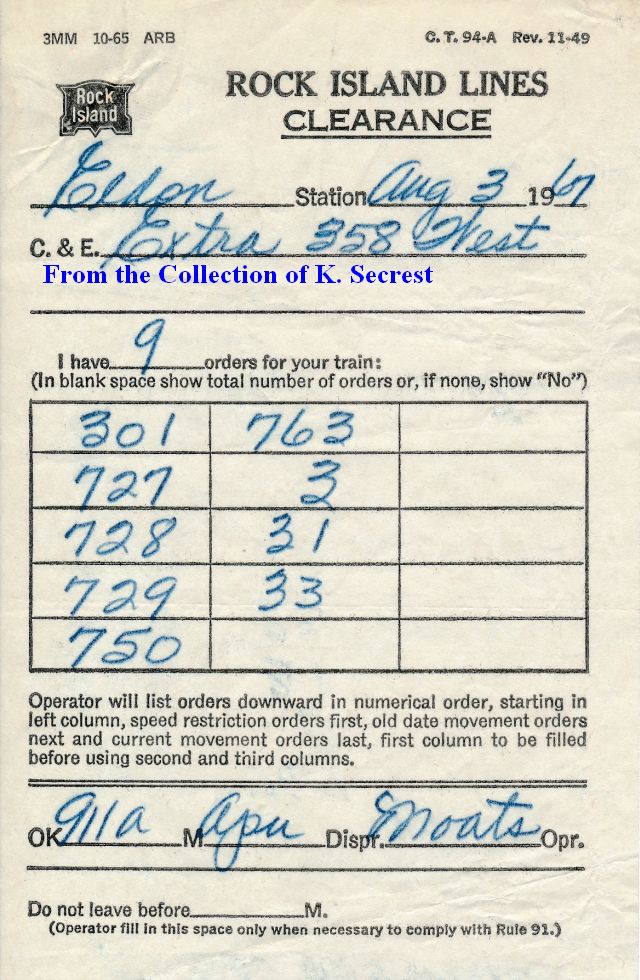 3MM 10-65 ARB C. T. 94-A Rev. 11-49
Rock Island
ROCK ISLAND LINES
CLEARANCE
Eldon Station Aug 3 1967
C. & E. Extra 358 West
From the Collection of K. Secrest
I have 9 orders for your train:
(In blank space show total number of orders or, if none, show "No")
301 763
727 3
728 31
729 33
750
Operator will list orders downward in numerical order, starting in
left column, speed restriction orders first, old date movement orders
next and current movement orders last, first column to be filled
before using second and third columns.
OK 911a M Dispr. Moats Opr.
Do not leave before M.
(Operator fill in this space only when necessary to comply with Rule 91.)